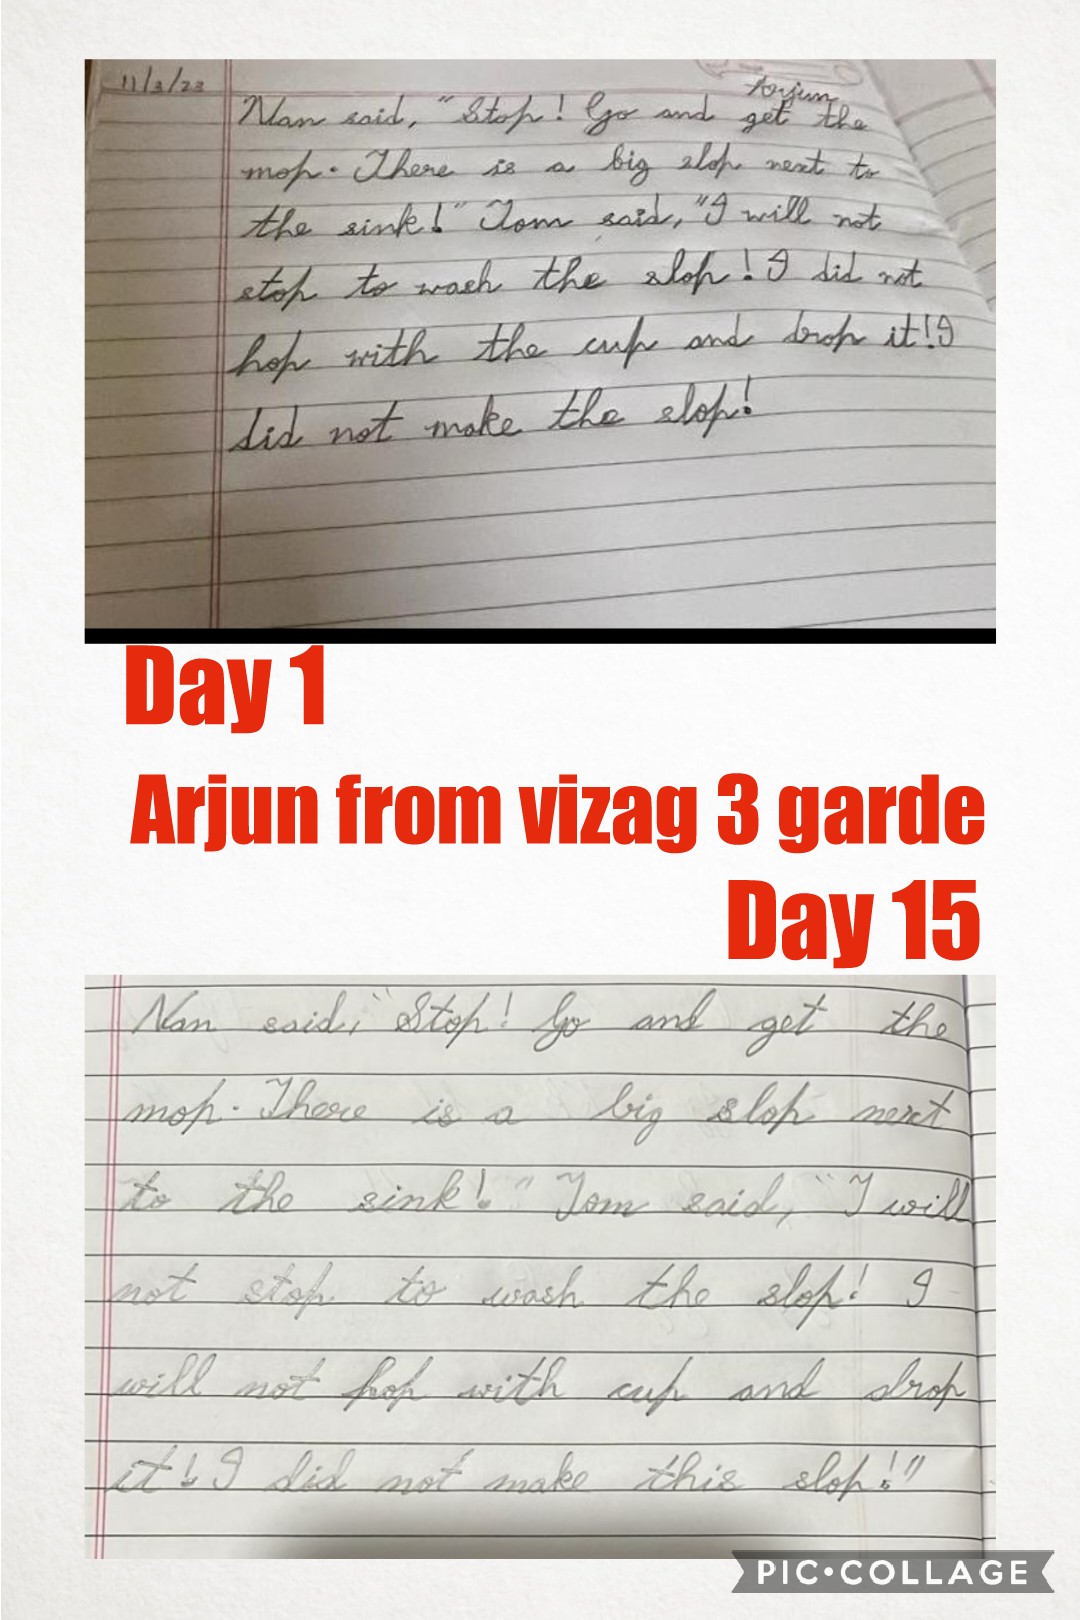 11/3/23
Arjun
Nan said, "Stop! Go and get the
mop. There is a big slop next to
the sink!" Tom said, "I will not
stop to wash the slop! I did not
hop with the cup and drop it! I
did not make the slop!
Day 1
Arjun from vizag 3 garde
Day 15
Nan said, "Stop! Go and get the
mop. There is a big slop next
to the sink!" Tom said, "I will
not stop to wash the slop! I
will not hop with cup and drop
it! I did not make this slop!"
PIC•COLLAGE